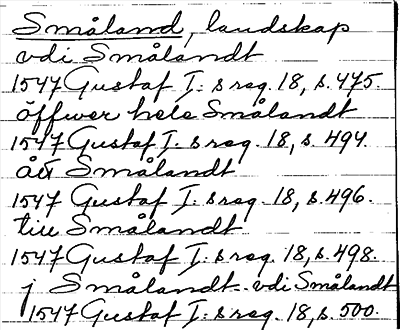 Småland, landskap
vdi Smålandt
1547 Gustaf I:s reg. 18, s. 475.
öffwer hele Smålandt
1547 Gustaf I:s reg. 18, s. 494.
ått Smålandt
1547 Gustaf I:s reg. 18, s. 496.
till Smålandt
1547 Gustaf I:s reg. 18, s. 498.
j Smålandt. vdi Smålandt
1547 Gustaf I:s reg. 18, s. 500.